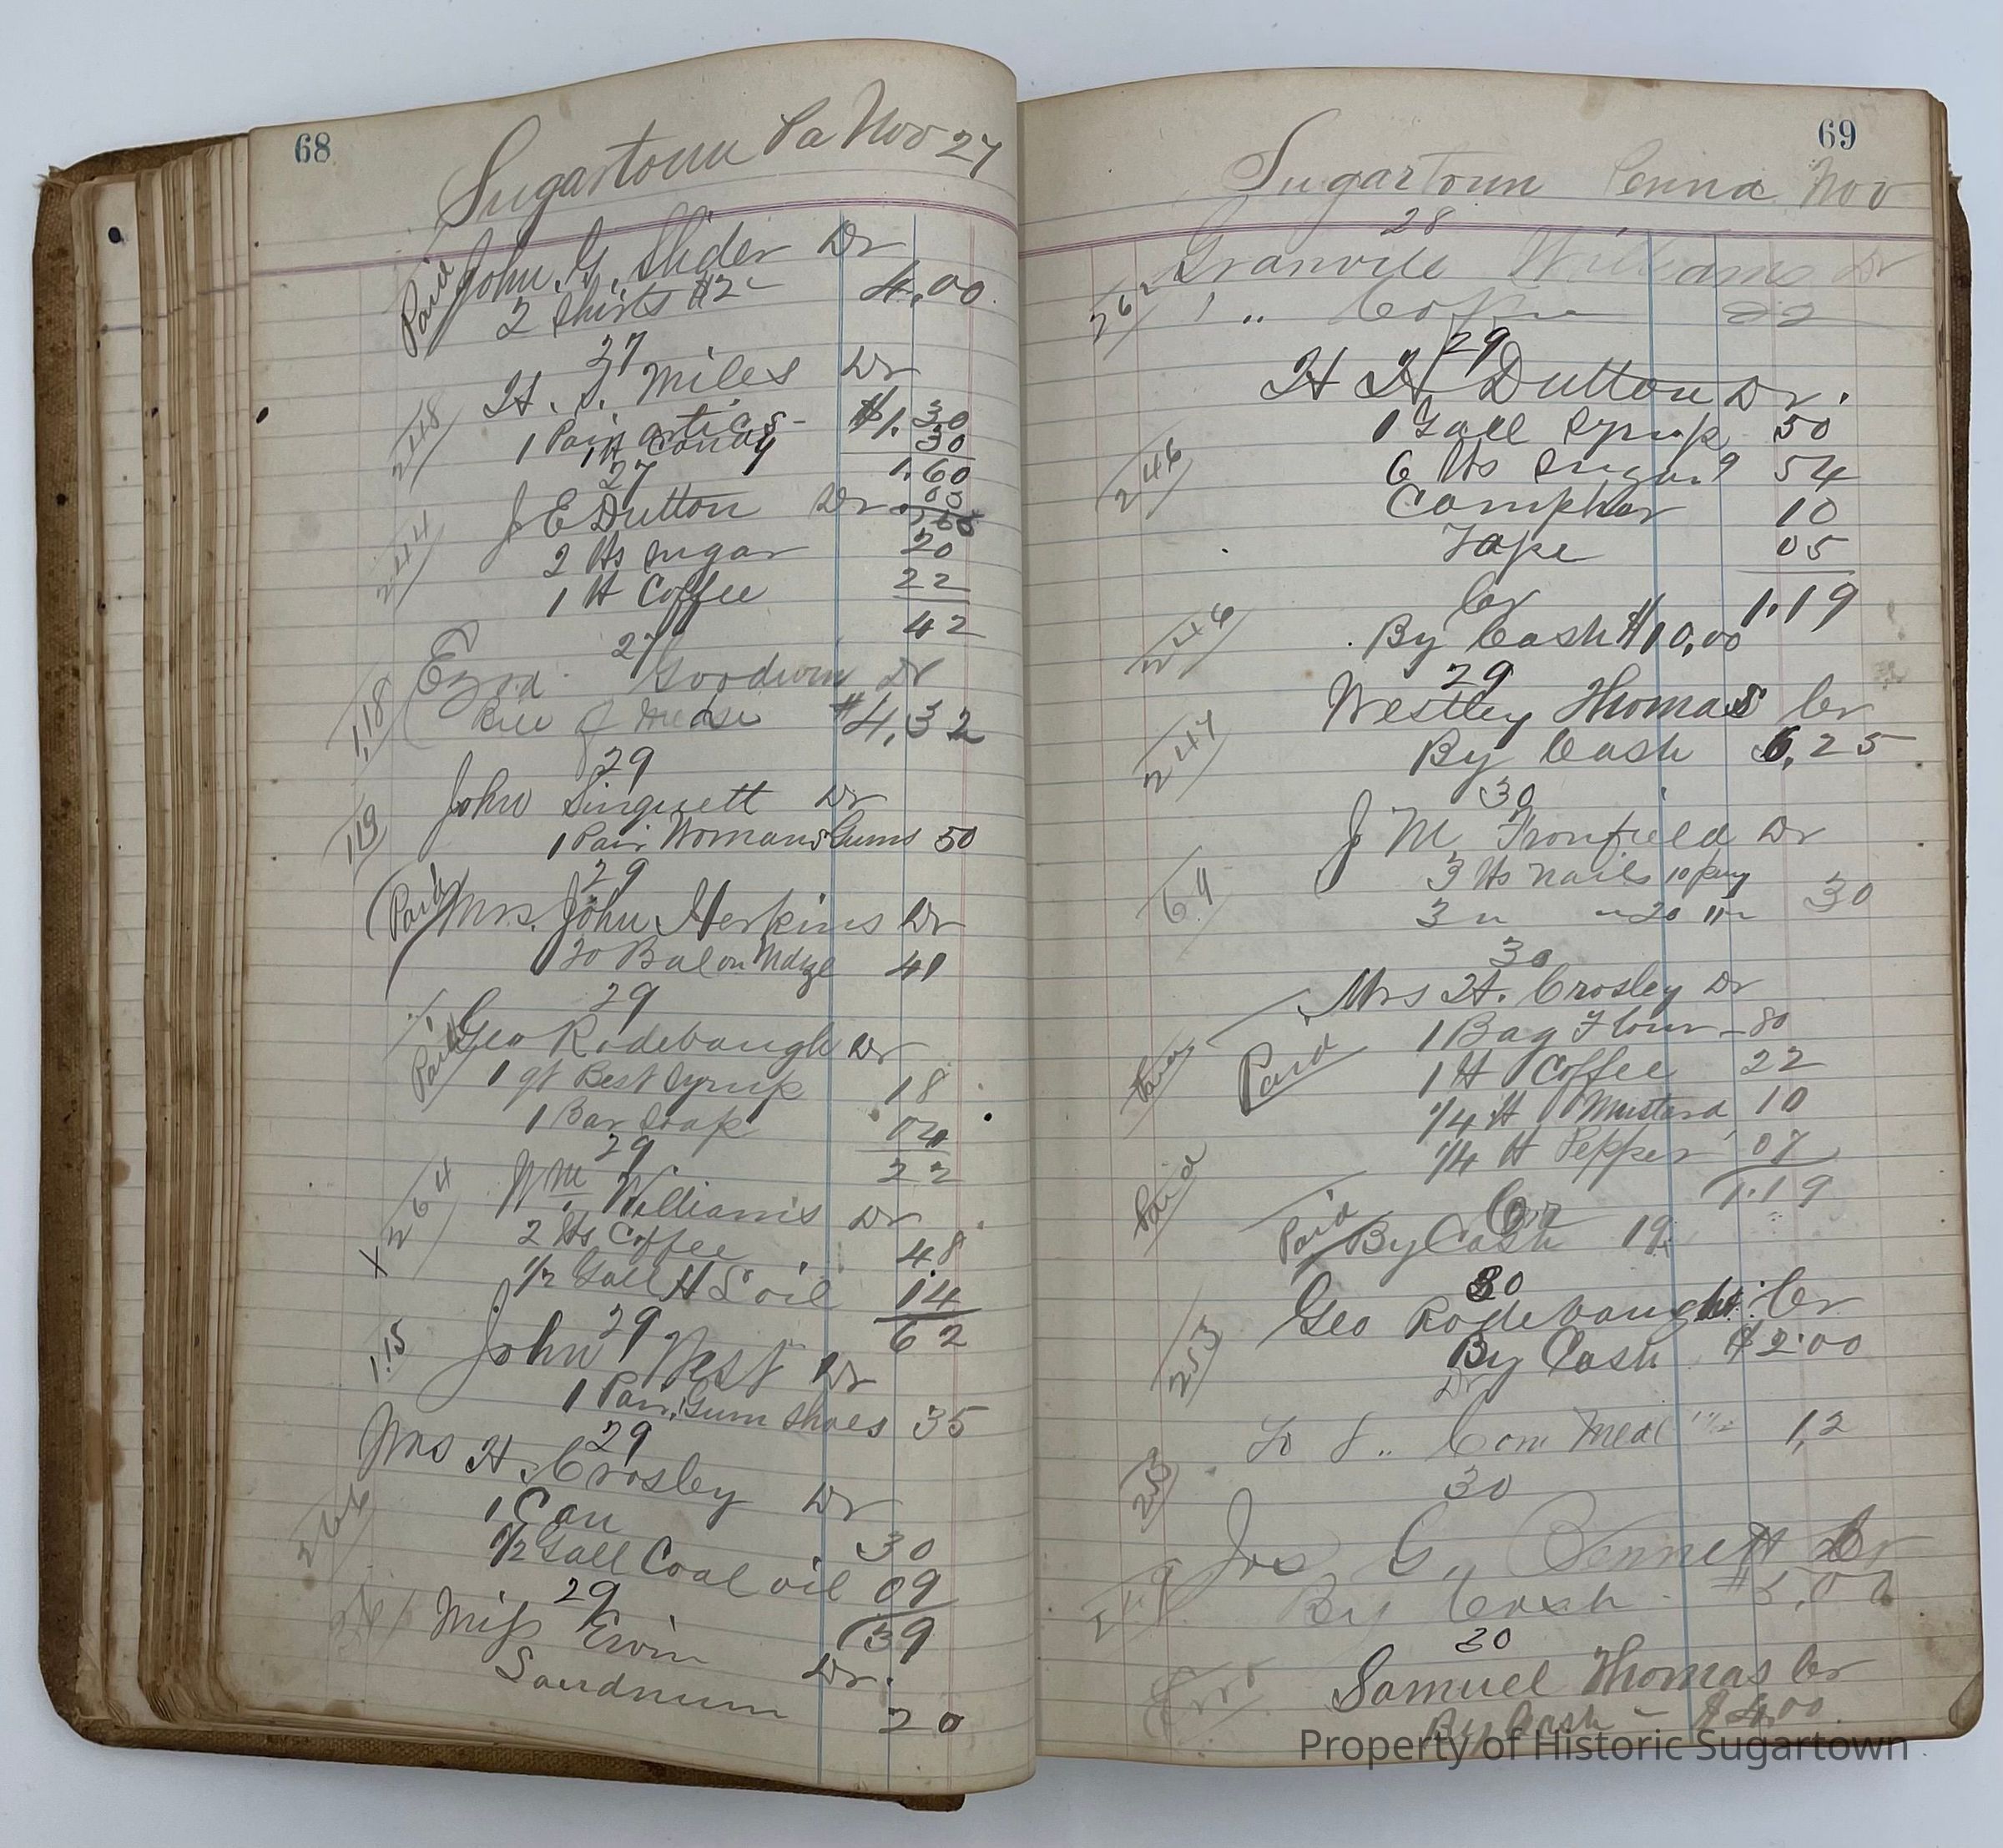 68
Sugartown Pa Nov 27
Paid John. G. Slider Dr
2 Shirts $2- 4,00
27
248 H. S. Miles Dr
1 Pair artics- $1.30
1 lb Candy 30
1.60
27
244 J E Dutton Dr
2 lbs sugar 20
1 lb Coffee 22
42
27
118 Ezra Goodwin Dr
Bill of Mdse $4,32
29
119 John Singuett Dr
1 Pair Womans Gums 50
29
Paid Mrs. John Herkins Dr
To Bal on Mdze 41
29
Paid Geo Rodebaugh Dr
1 qt Best Syrup 18
1 Bar Soap 04
22
29
X 264 Wm. Williams Dr
2 lbs Coffee 48
1/2 Gall H S oil 14
62
29
115 John West Dr
1 Pair Gum Shoes 35
29
Mrs H. Crosley Dr
266 1 Can 30
1/2 Gall Coal oil 09
39
29
Miss Ervin Dr.
20
69
Sugartown Penna Nov
28
Granvile Williams Dr
262 1 " Coffee 22
29
H H Dutton Dr.
1 Gall Syrup 50
246 6 lbs Sugar 9 54
Camphor 10
Tape 05
1.19
Cr
246 By Cash $10,00
29
Westley Thomas Cr
247 By Cash 6,25
30
J M Fronfield Dr
3 lbs nails 10 peny
64 3 " " 20 " 30
30
Mrs H. Crosley Dr
1 Bag Flour - 80
Paid Paid 1 lb Coffee 22
1/4 lb Mustard 10
1/4 lb Pepper 07
1.19
Paid Cr
Paid By Cash 19
30
Geo Rodebaugh Cr
253 By Cash $2.00
Dr
253 To 8 " Corn Meal 12
30
Jos G. Bennett Cr
249 By Cash - $5,00
30
Samuel Thomas Cr
By Cash - $4,00
Property of Historic Sugartown